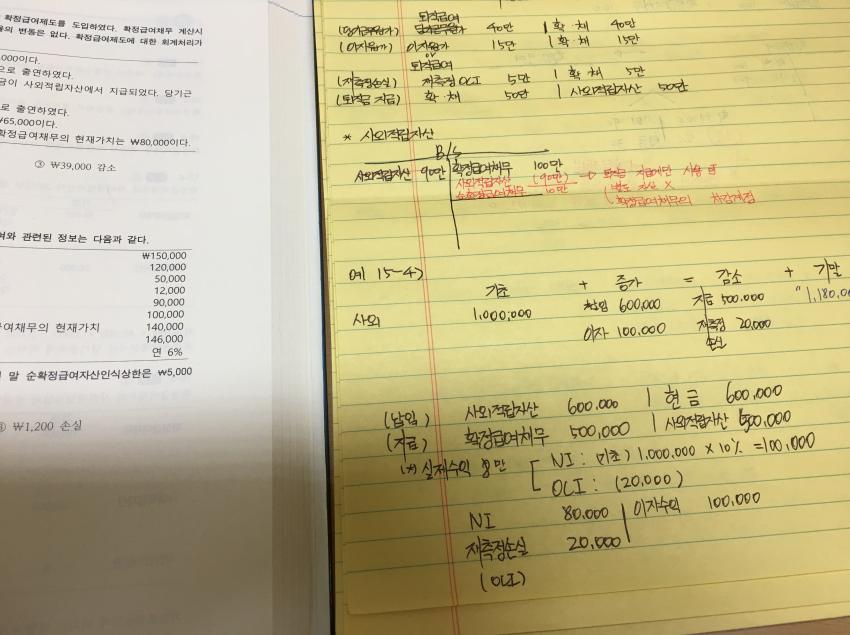 확정급여제도를 도입하였다. 확정급여채무 계산시
율의 변동은 없다. 확정급여제도에 대한 회계처리가
,000이다.
으로 출연하였다.
금이 사외적립자산에서 지급되었다. 당기근
로 출연하였다.
₩65,000이다.
확정급여채무의 현재가치는 ₩80,000이다.
③ ₩39,000 감소
여와 관련된 정보는 다음과 같다.
₩150,000
120,000
50,000
12,000
90,000
100,000
급여채무의 현재가치 140,000
146,000
연 6%
말 순확정급여자산인식상한은 ₩5,000
₩1,200 손실
퇴직급여
(당기근무원가) 40만 | 확·채 40만
(이자원가) 이자원가 15만 | 확·채 15만
퇴직급여
(재측정손실) 재측정 OCI 5만 | 확·채 5만
(퇴직금 지급) 확·채 50만 | 사외적립자산 50만
* 사외적립자산
B/S
사외적립자산 90만 확정급여채무 100만
사외적립자산 (90만) → 퇴직금 지급에만 사용
순확정급여채무 10만 (별도 자산 X
확정급여채무의 차감계정
예 15-4)
기초 + 증가 = 감소 + 기말
사외 1,000,000 600,000 지급 500,000 "1,180,0
이자 100,000 재측정 20,000
손실
(납입) 사외적립자산 600,000 | 현금 600,000
(지급) 확정급여채무 500,000 | 사외적립자산 500,000
(*) 실제수익 8만 [ NI : (기초) 1,000,000 × 10% = 100,000
OCI : (20,000)
NI 80,000 | 이자수익 100,000
재측정손실 20,000
(OCI)